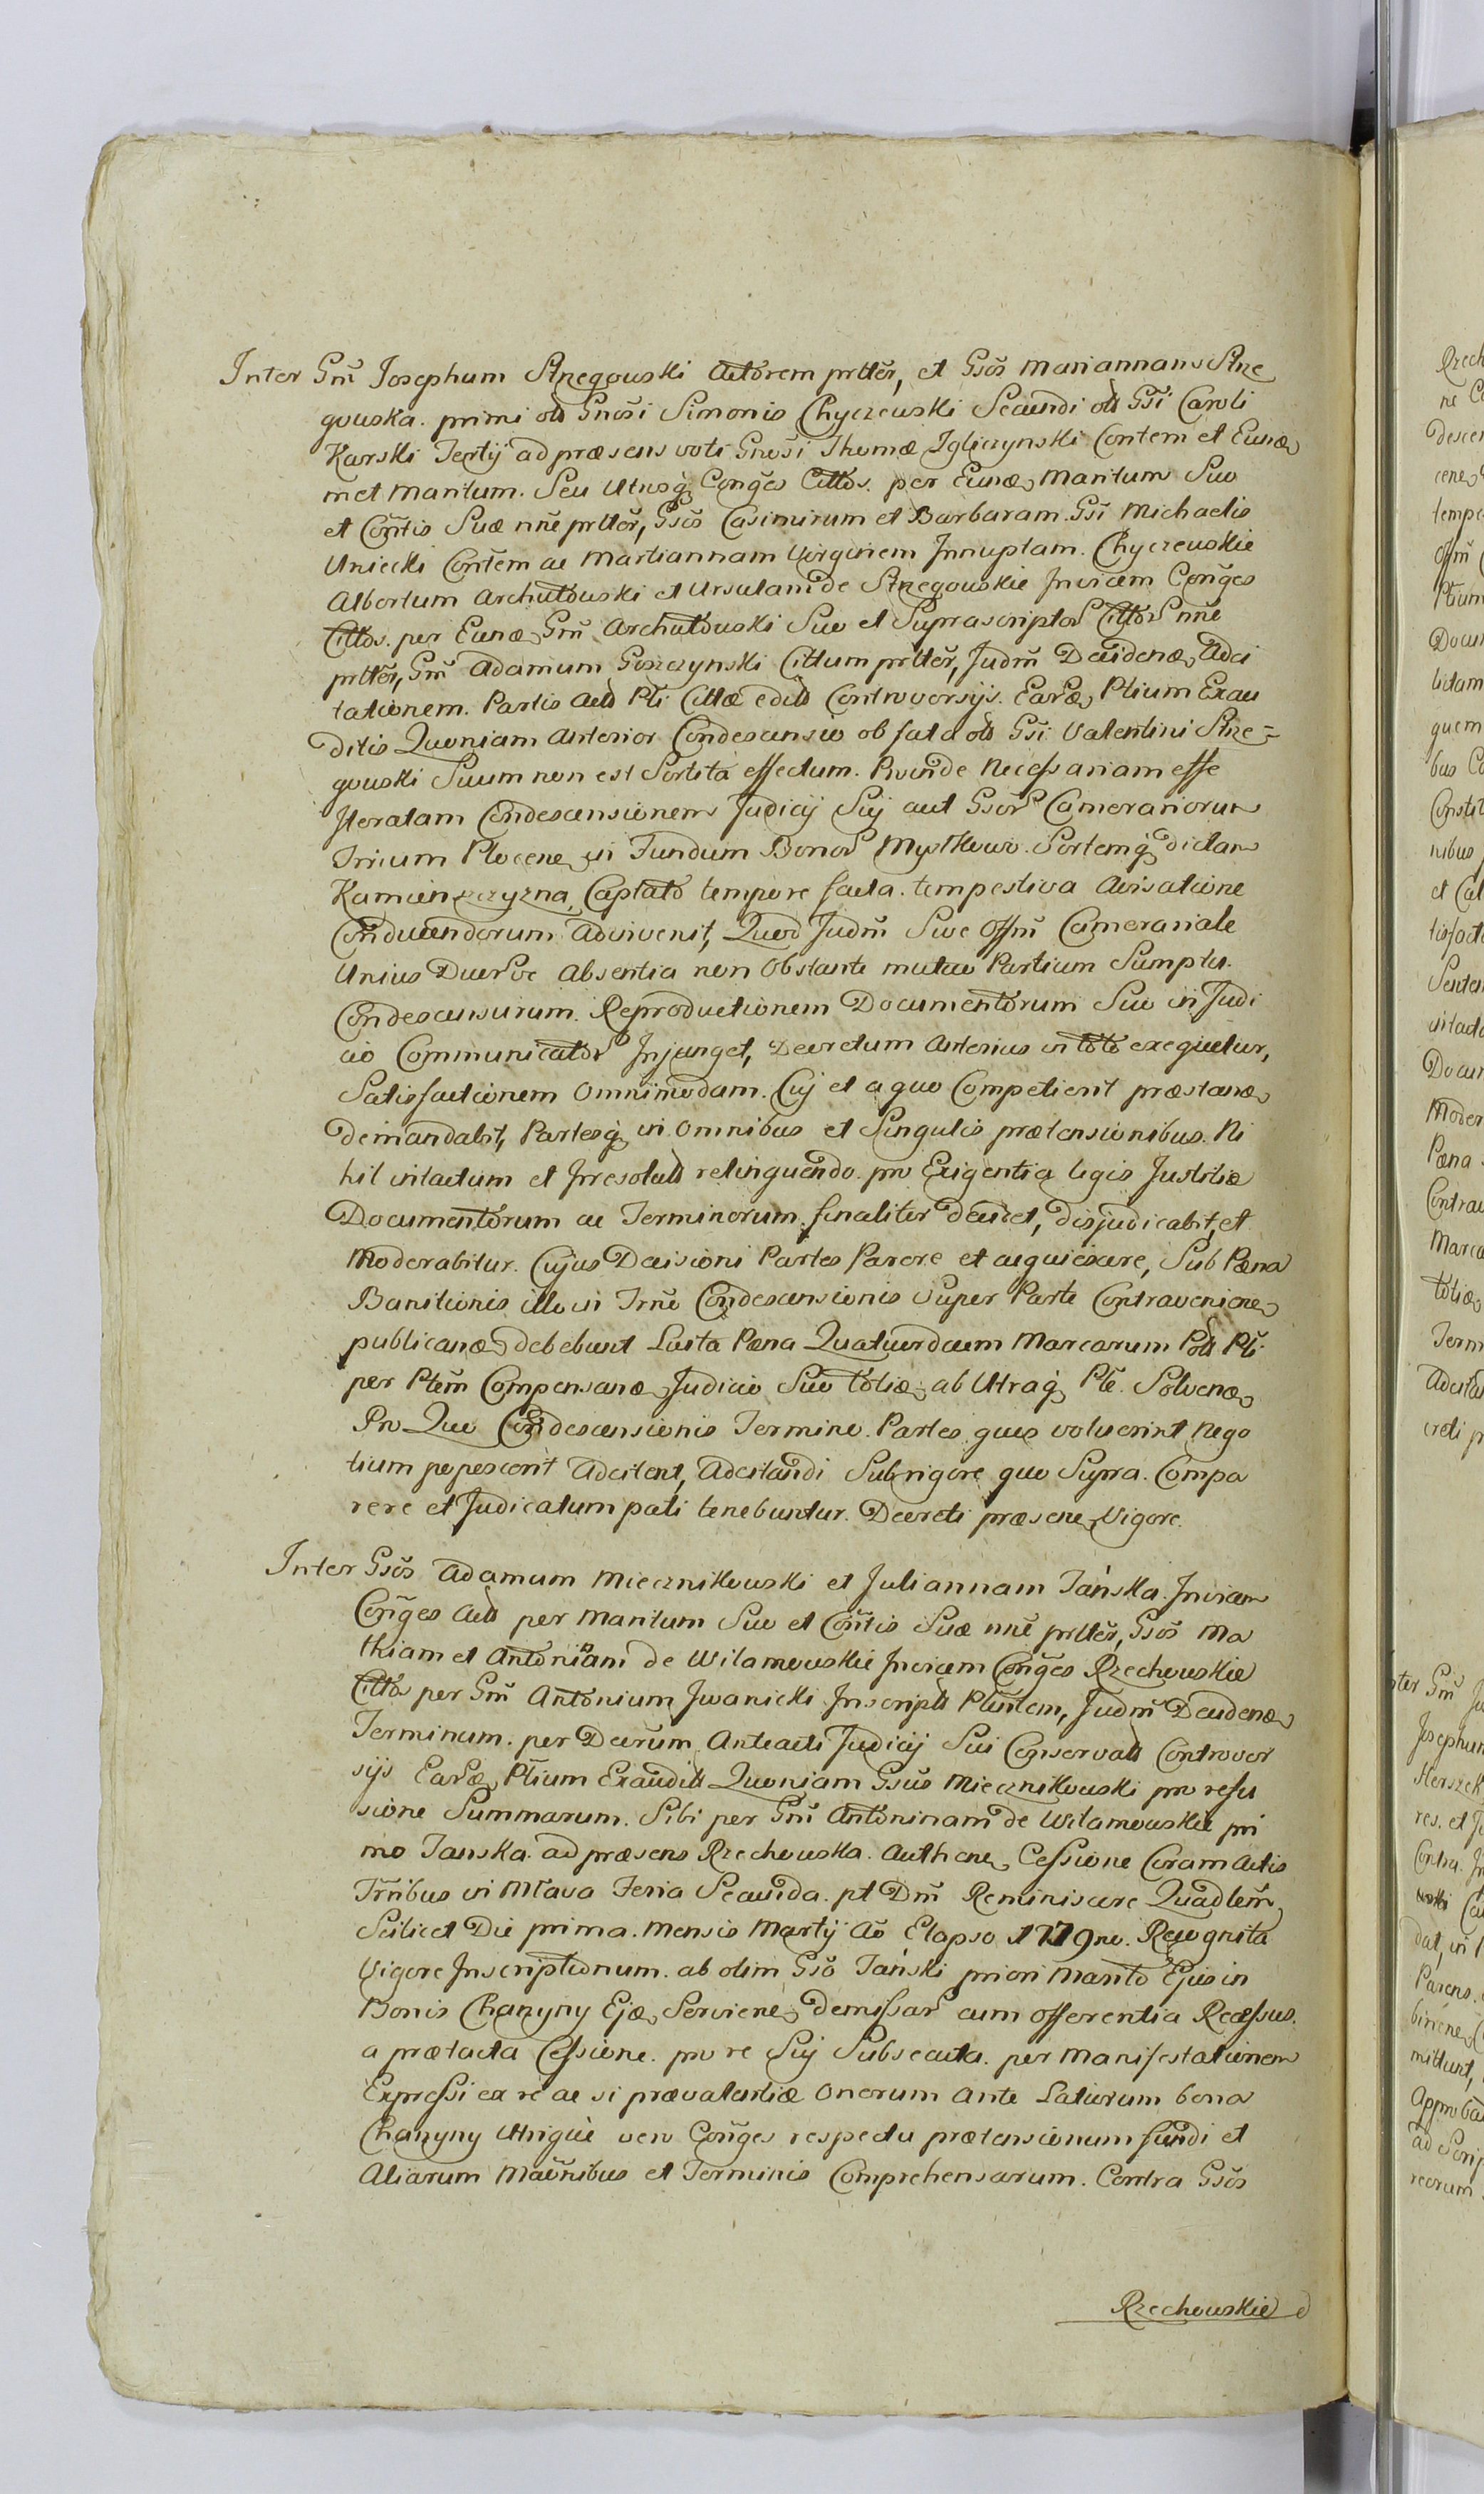 Inter Gm̃ Josephum Strzegouski Actorem prttẽr, et Gsõs Mariannam Strze
gouska. primi oli Gnosi Simonis Chyczewski Secundi oli Gsĩ Caroli
Karski Tertij ad præsens voti Gnosi Thomæ Jgliczynski Contem et Eunæ
met Maritum. Seu Utrosq Conges Cittos. per Eunæ Maritum Suo
et Contis Suæ nñe prttẽr, Gsõs Casimirum et Barbaram. Gsĩ Michaelis
Uniecki Contem ac Martiannam Virginem Innuptam. Chyczewskie
Albertum Archutouski et Ursulam de Strzegouskie Invicem Conges
Cittos. per Eunæ Gm̃ Archutouski Suo et Suprascriptor Cittor nñe
prttẽr, Gm̃ Adamum Goszczynski Cittum prttẽr, Judm̃ Decidenæ Adci
tationem. Partis Acto Pti Cittæ edito Controversijs. Earæ Ptium Exau
ditis Quoniam Anterior Condescensio ob fata oli Gsĩ Valentini Strze=
gouski Suum non est Sortita effectum. Proinde Necessariam esse
Jteratam Condescensionem Judicij Sui aut Gsor Camerariorum
Trium Plocene in Fundum Bonor Mystkowo. Sortemq dictam
Kamienszczyzna, Captato tempore facta. tempestiva Avisatione
Conducendorum Adinvenit, Quod Judm̃ Sive Offm̃ Camerariale
Unius Duor ve Absentia non Obstante mutuo Partium Sumptu.
Condescensurum. Reproductionem Documentorum Suo in Judi
cio Communicator Injunget, Decretum Anterius in toto exequetur,
Satisfactionem Omnimodam. Cuj et a quo Competierit præstanæ
demandabit, Partesq in Omnibus et Singulis prætensionibus. Ni
hil intactum et Irresolutum relinquendo. pro Exigentia legis Justitiæ
Documentorum ac Terminorum. finaliter decidet, disjudicabit, et
Moderabitur. Cujus Decisioni Partes Parere et acquiescere, Sub Pæna
Banitionis illo in Trñe Condescensionis Super Parte Contraveniene
publicanæ debebunt Luita Pæna Quatuordecim Marcarum Pol Pti
per Ptem̃ Compensanæ Judicio Suo totiæ ab Utraq Pte. Solvenæ
Pro Quo Condescensionis Termino. Partes quos voluerint Nego
tium poposcerit Adcitent, Adcitandi Sub rigore quo Supra. Compa
rere et Judicatum pati tenebuntur. Decreti præsene Vigore.
Inter Gsõs Adamum Miecznikouski et Juliannam Tańska. Invicem
Conges Acto per Maritum Suo et Contis Suæ nñe prttẽr, Gsõs Ma
thiam et Antoninam de Wilamouskie Invicem Conges Rzechouskie
Citto per Gm̃ Antonium Jwanicki Inscripto Ptentem, Judm̃ Decidenæ
Terminum. per Decrum Anteacti Judicij Sui Conservato Controver
sijs Earæ Ptium Exaudito Quoniam Gsus Miecznikouski pro refu
sione Summarum. Sibi per Gm̃ Antoninam de Wilamouskie pri
mo Tanska. ad præsens Rzechouska. Authene Cessione Coram Actis
Trñibus in Mława Feria Secunda. pt Dm̃ Reminiscere Quadlem
Scilicet Die prima. Mensis Martij Aõ Elapso 1779no. Recognita
Vigore Inscriptionum. ab olim Gsõ Tański priori Marito Ejus in
Bonis Chanyny Ejæ Serviene demissar cum offerentia Recessus.
a prætacta Cessione. pro re Sui Subsecuta. per Manifestationem
Expressi ex re ac si prævalentiæ Onerum Ante Latiorum bona
Chanyny Utriqùe vero Conges respectu prætensionum fundi et
Aliarum Maeñibus et Terminis Comprehensarum. Contra Gsõs
Rzechouskie